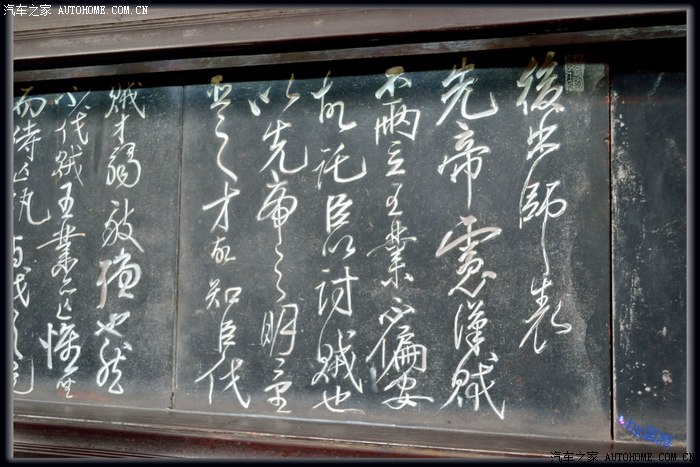 汽车之家 AUTOHOME.COM.CN
後出師表
先帝慮漢賊
不兩立王業不偏安
故託臣以討賊也
以先帝之明量
臣之才故知臣伐
賊才弱敵強也然
不伐賊王業亦亡惟坐
而待亡孰與伐之是
汽车之家 AUTOHOME.COM.CN